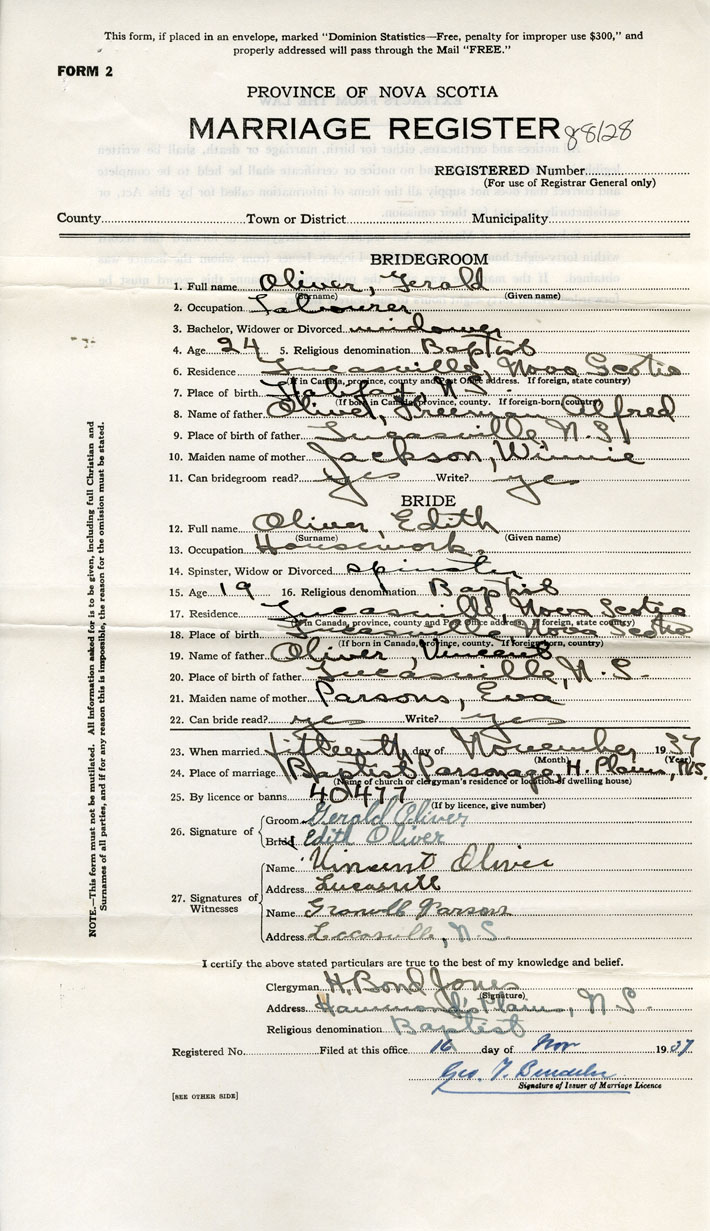 This form, if placed in an envelope, marked "Dominion Statistics—Free, penalty for improper use $300," and
properly addressed will pass through the Mail "FREE."
FORM 2
PROVINCE OF NOVA SCOTIA
MARRIAGE REGISTER 88128
REGISTERED Number
(For use of Registrar General only)
County Town or District Municipality
BRIDEGROOM
1. Full name Oliver, Gerald
(Surname) (Given name)
2. Occupation Labourer
3. Bachelor, Widower or Divorced widower
4. Age 24 5. Religious denomination Baptist
6. Residence Lucasville, Nova Scotia
(If in Canada, province, county and Post Office address. If foreign, state country)
7. Place of birth Halifax, N.S.
(If born in Canada, province, county. If foreign-born, country)
8. Name of father Oliver, Freeman Alfred
9. Place of birth of father Lucasville, N.S.
10. Maiden name of mother Jackson, Winnie
11. Can bridegroom read? yes Write? yes
BRIDE
12. Full name Oliver, Edith
(Surname) (Given name)
13. Occupation Housework.
14. Spinster, Widow or Divorced spinster
15. Age 19 16. Religious denomination Baptist
17. Residence Lucasville, Nova Scotia
(If in Canada, province, county and Post Office address. If foreign, state country)
18. Place of birth Lucasville, Nova Scotia
(If born in Canada, province, county. If foreign-born, country)
19. Name of father Oliver, Vincent
20. Place of birth of father Lucasville, N.S.
21. Maiden name of mother Parsons, Eva
22. Can bride read? yes Write? yes
23. When married fifteenth day of November 1937
(Month) (Year)
24. Place of marriage Baptist Parsonage, H. Plains, N.S.
(Name of church or clergyman's residence or location of dwelling house)
25. By licence or banns 40477
(If by licence, give number)
26. Signature of Groom Gerald Oliver
Bride Edith Oliver
27. Signatures of Witnesses
Name Vincent Oliver
Address Lucasvill
Name Parson
Address Lucasville, N.S.
I certify the above stated particulars are true to the best of my knowledge and belief.
Clergyman H. Bond Jones
(Signature)
Address Hammond's Plains, N.S.
Religious denomination Baptist
Registered No. Filed at this office 16 day of Nov 1937
Geo. T.
Signature of Issuer of Marriage Licence
[SEE OTHER SIDE]
NOTE.—This form must not be mutilated. All information asked for is to be given, including full Christian and
Surnames of all parties, and if for any reason this is impossible, the reason for the omission must be stated.